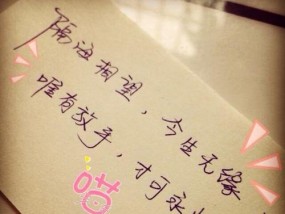 隔海相望，今生无缘
唯有放手，才可永